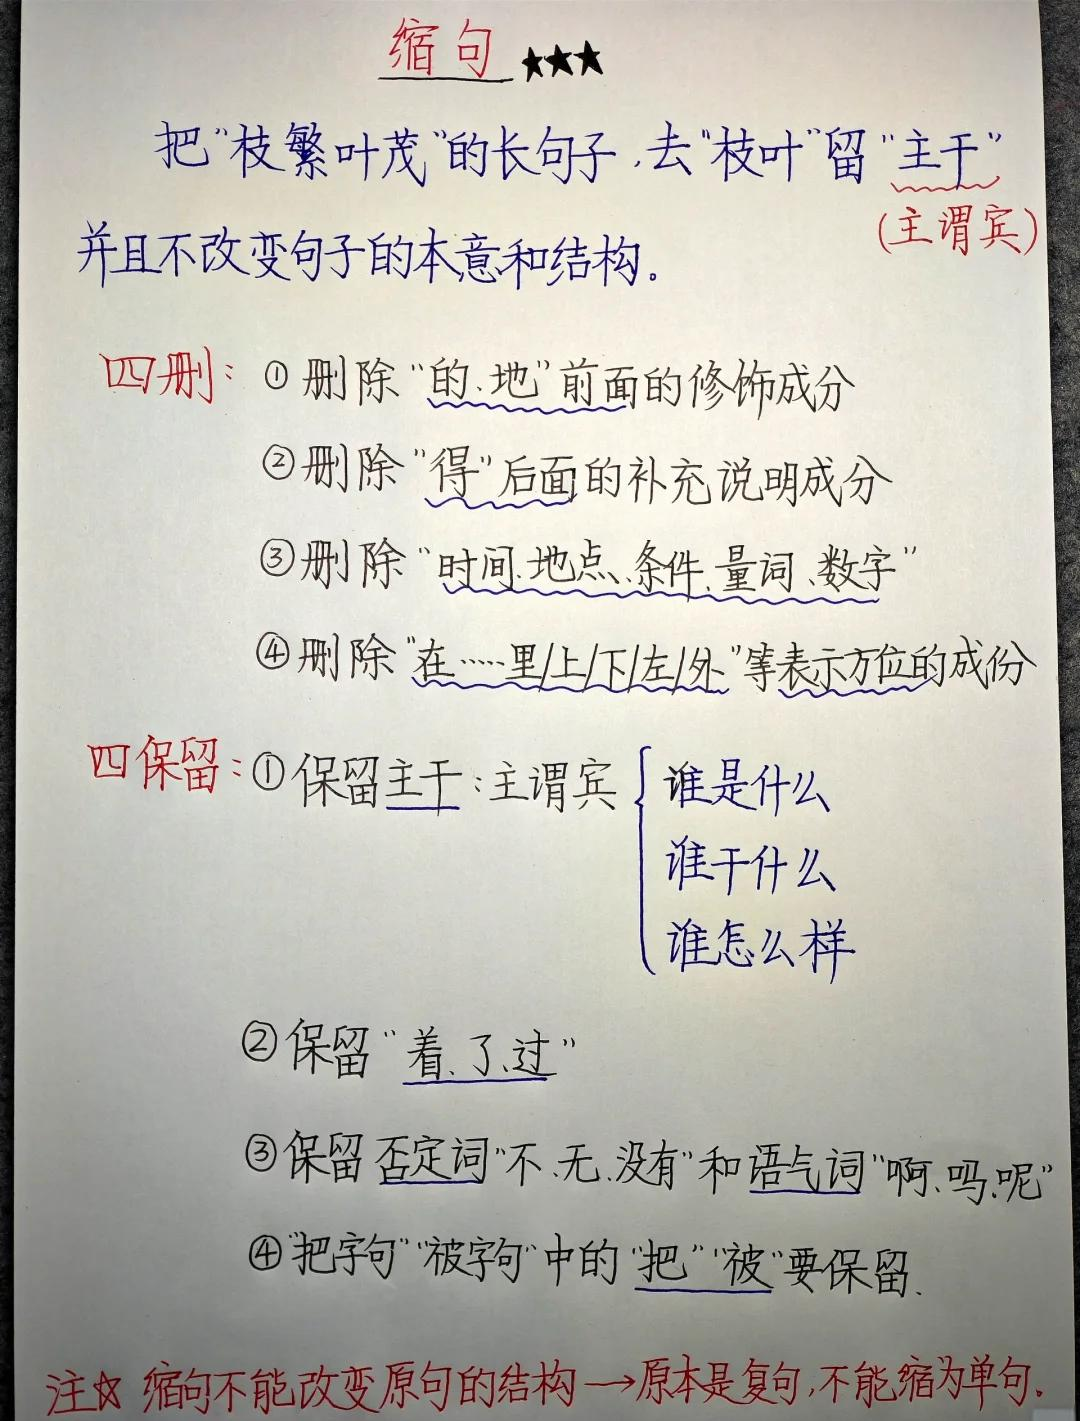 缩句★★★
把“枝繁叶茂”的长句子,去“枝叶”留“主干”
(主谓宾)
并且不改变句子的本意和结构。
四删:①删除“的、地”前面的修饰成分
②删除“得”后面的补充说明成分
③删除“时间、地点、条件、量词、数字”
④删除“在……里/上/下/左/外”等表示方位的成份
四保留:①保留主干:主谓宾
谁是什么
谁干什么
谁怎么样
②保留“着、了、过”
③保留否定词“不、无、没有”和语气词“啊、吗、呢”
④“把字句”“被字句”中的“把”“被”要保留.
注☆ 缩句不能改变原句的结构→原本是复句,不能缩为单句.